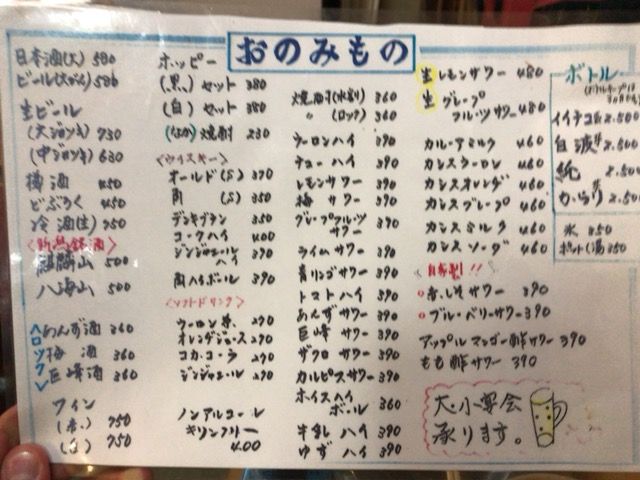 おのみもの
日本酒(大) 580
ビール(大びん) 586
生ビール
(大ジョッキ) 930
(中ジョッキ) 630
梅酒 450
どぶろく 450
冷酒(生) 950
<新潟銘酒>
麒麟山 500
八海山 500
あんず酒 360
梅酒 360
巨峰酒 360
ワイン
(赤) 750
(白) 750
ホッピー
(黒) セット 380
(白) セット 380
焼酎 230
<ウイスキー>
オールド(S) 390
角 (S) 350
デンキブラン 350
コークハイ 400
ジンジャエールハイ 390
角ハイボール 390
<ソフトドリンク>
ウーロン茶 290
オレンヂジュース 290
コカ・コーラ 290
ジンジャエール 290
ノンアルコール
キリンフリー
400
焼酎(水割) 360
〃 (ロック) 360
ウーロンハイ 390
チューハイ 390
レモンサワー 390
梅サワー 390
グレープフルーツサワー 390
ライムサワー 390
青リンゴサワー 390
トマトハイ 390
あんずサワー 390
巨峰サワー 390
ザクロサワー 390
カルピスサワー 390
ホイスハイボール 360
牛乳ハイ 390
ゆずハイ 390
生レモンサワー 480
生グレープ
フルーツサワー 480
カルーアミルク 460
カシスウーロン 460
カシスオレンヂ 460
カシスグレープ 460
カシスミルク 460
カシスソーダ 460
<自家製!!>
赤しそサワー 390
ブルーベリーサワー 390
アップルマンゴー酢サワー 390
もも酢サワー 390
大小宴会
承ります。
ボトル
イイチコ 2,500
白波 2,500
純 2,500
からり 2,500
氷 350
ポット(湯) 350